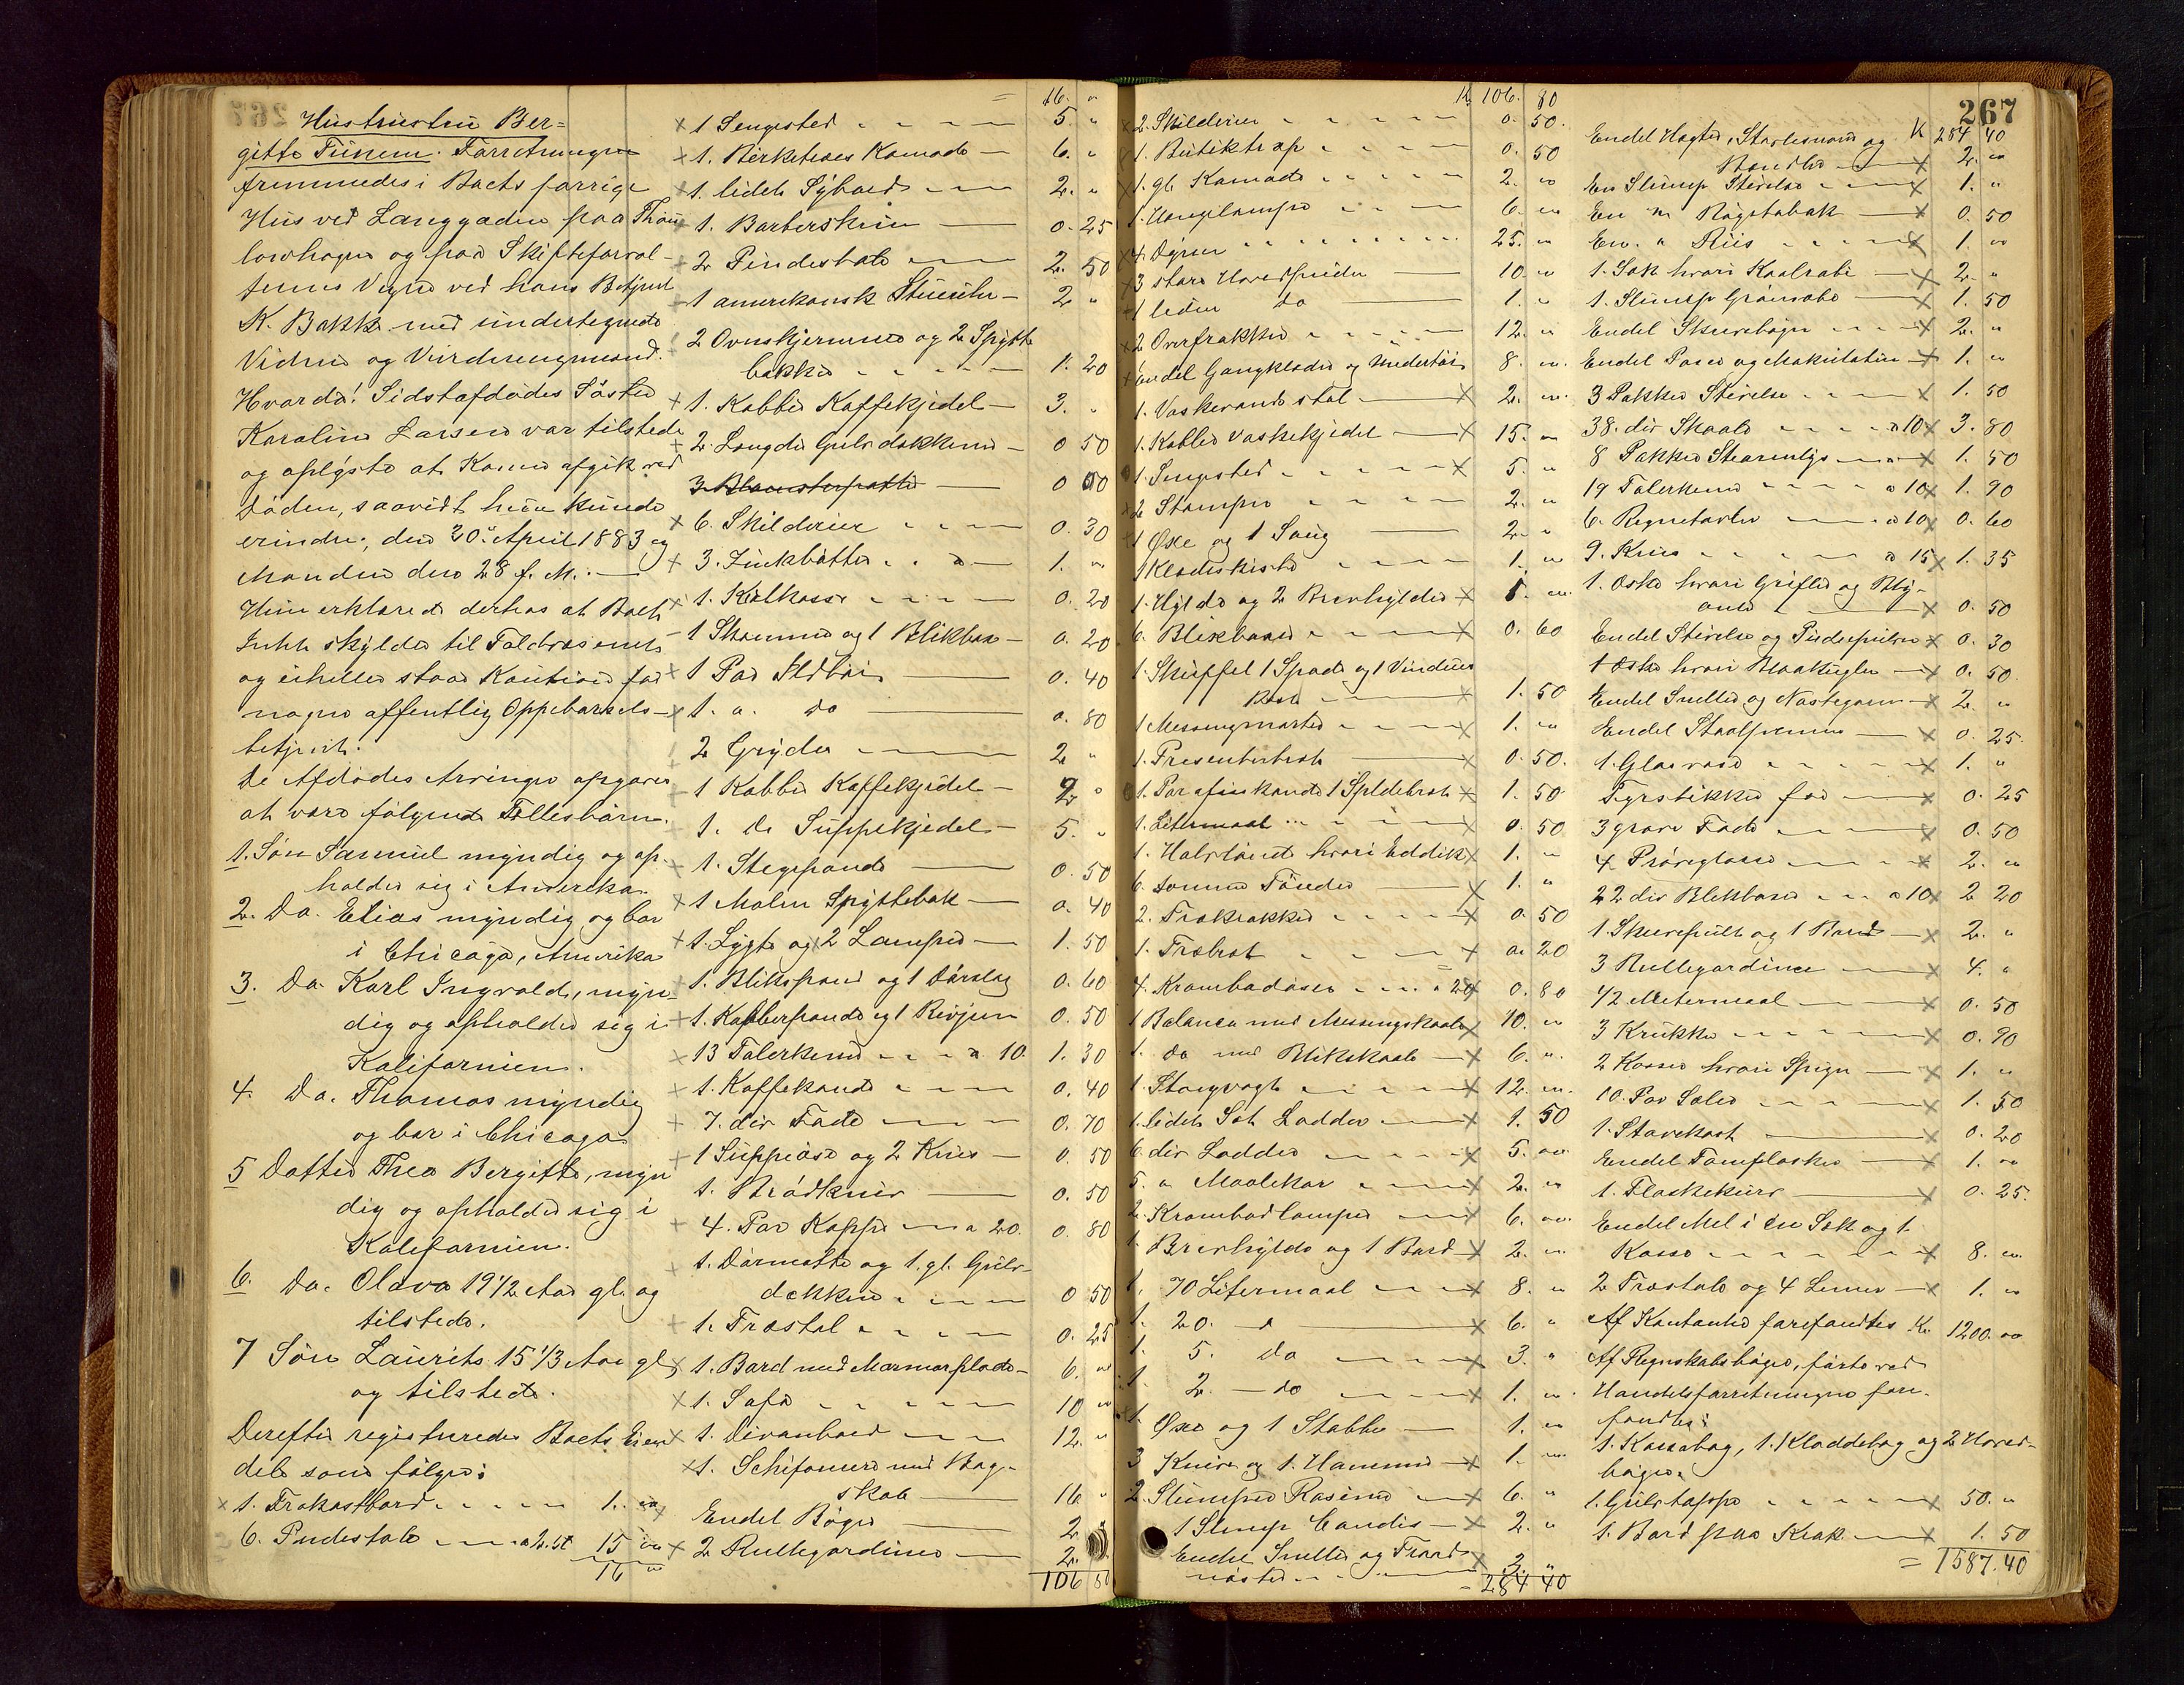 Hustrustru Ber=
gitte Tunem. Forretningen
fremmedes i Boets forrige
Hus ved Langgaden paa Thau
lowhogen og paa Skifteforval-
terens Vegne ved hans Betjent
K. Bakke med undertegnede
Vidne og Vurderingsmand.
Hvorda! Sidstafdødes Søster
Karoline Larsen var tilstede
og oplyste at Konen afgik ved
Døden, saavidt hun kunde
erindre, den 20de April 1883 og
Manden den 28 f. M. —
Hun erklærede derhos at Boet
Intet skylder til Toldvæsenet
og eiheller staar Kaution for
nogen offentlig Oppebørsels-
betjent.
De Afdødes Arvinger opgaves
at være følgende Fællesbørn.
1. Søn Samuel myndig og op-
holder sig i Amerika.
2. Do. Elias myndig og bor
i Chicago, Amerika
3. Do. Karl Ingvald, myn
dig og opholder sig i
Kalifornien.
4. Do. Thomas myndig
og bor i Chicago
5 Datter Thea Bergitte, myn
dig og opholder sig i
Kalifornien.
6. Do. Olava 19 1/2 Aar gl. og
tilstede.
7 Søn Laurits 15 1/3 Aar gl
og tilstede.
Derefter registreredes Boets Eien
dele som følger:
1. Frokostbord 1. "
6. Pindestole a 2.50 15 "
16 "
= 16. "
x 1 Sengested 5. "
x 1. Birketræes Komode — 6. "
x 1. lidet Sybord 2. "
x 1. Barberskrin 0. 25
2 Pindestole 2. 50
1 amerikansk Stueuhr — 2 "
2 Ovnskjerme og 2 Spytte
bakker 1. 20
x 1. Kobber Kaffekjedel — 3. "
x 2. Længder Gulvdækken — 0 50
3. Blomsterpotter 0 50
x 6. Skilderier 0. 30
x 3. Zinkbøtter 1. "
x 1. Kulkasse 0. 20
1 Skammel og 1 Blikboxe — 0. 20
x 1 Par Ildtøi 0. 40
x 1. " do 0. 80
2 Gryder 2 "
1 Kobber Kaffekjedel — 2 "
1. Do Suppekjedel — 5. "
1. Stegepande 0. 50
x 1 Malm Spyttebak — 0. 40
x 1. Lygte og 2 Lamper — 1. 50
1. Blikspand og 1 Dørslag 0. 60
1. Kobberpande og 1 Rivjern 0. 50
x 13 Talerkener a 10. 1. 30
1. Kaffekande 0. 40
7. div Fade 0. 70
1 Suppeøse og 2 Knive — 0. 50
1. Brødkniv 0. 50
4. Par Kopper a 20. 0. 80
1. Dørmatte og 1. gl. Gulv-
dækken 0 50
1. Træstol 0. 25
x 1. Bord med Marmorplade — 6. "
x 1. Sofa 10 "
x 1. Divanbord 12. "
x 1. Schifoniere med Bog-
skab 16 "
x Endel Bøger 2. "
x 2 Rullegardiner 2.
106 80
K 106. 80
x 2. Skilderier 0. 50.
1. Butiktrap 0. 50
1. gl. Komode 2. "
1. Hængelampe 6. "
4 Dyner 25. "
3 store Hovedpuder 10. "
1 liden do 1. "
2 Overfrakker 12. "
x Endel Gangklæder og Undertøi 8. "
1. Vaskevandsstol x 2. "
1. Kobber Vaskekjedel x 15. "
1. Sengested x 5. "
2 Stamper 2. "
1 Øxe og 1 Saug 2. "
1 Klædeskiste 1. "
1. Hylde og 2 Brevhylder x 1. "
6. Blikboxer x 0. 60
1. Skuffel 1 Spade og 1 Vindues
Kost x 1. 50
1 Messingmorter x 1. "
1. Presenterbret x 0. 50.
1. Parafinkande 1 Spildebret x 1. 50
1. Litermaal x 0. 50
1. Halvtønde hvori Eddik x 1. "
6. tomme Tønder x 1. "
2. Trækrakker x 0. 50
1. Træbret x 0. 20
4. Krambodøser a 20 x 0. 80
1 Balance med Messingskaale x 10. "
1. do med Blikskaale x 6. "
1. Stangvægt x 12. "
1. lidet Sæt Lodder x 1. 50
6. div Lodder x 5. "
5. " Maalekar x 2. "
2. Krambodlamper x 6. "
1. Brevhylde og 1 Bord x 2. "
1. 70 Litermaal x 8. "
1. 20. d x 6. "
1. 5. do x 3. "
1. 2. — do x 1. "
1. Øxe og 1 Stabbe — 1. "
3 Knive og 1. Hammer x 1. "
2. Slumper Rosiner x 6. "
1 Slump Candis — x 2. "
Endel Sneller og Traad
nøster x 3. "
= 284 40
267
K 284 40
Endel Hagter, Stortesnorer og
Baandter x 2. "
En Slump Stivelse x 1. "
En " Røgetobak x 0. 50
En. " Riis x 1. "
1. Sæk hvori Kaalrabi x 2. "
1. Slump Grønsæbe x 1. 50
Endel Skrivebøger x 2. "
Endel Poser og Makulatur x 1. "
3 Pakker Stivelse x 1. 50
38. div Skaale a 10 x 3. 80
8 Pakker Stearinlys x 1. 50
19 Talerkener a 10 x 1. 90
6. Regnetavler a 10 x 0. 60
9. Krus a 15 x 1. 35
1. Æske hvori Grifler og Bly-
anter x 0. 50
Endel Stivelse og Pudsepulver x 0. 30
1 Æske hvori Blaakugler x 0. 50.
Endel Sneller og Nøstegarn x 2. "
Endel Staalpenne x 0. 25.
1. Glasvase x 1. "
Fyrstikker for x 0. 25
3 grove Fade x 0. 50
4 Prøveglasse x 2. "
22 div Blikboxer a 10 x 2 20
1. Skrivepult og 1 Bord x 2. "
3 Rullegardiner x 4. "
1/2 Metermaal x 0. 50
3 Krukker x 0. 90
2 Kasser hvori Spiger x 1. "
10. Par Sæler x 1. 50
1. Stavekost x 0. 20
Endel Tomflasker x 1. "
1. Flaskekurv x 0. 25.
Endel Mel i en Sæk og 1
Kasse x 8. "
2 Træstole og 4 Lemer x 1. "
Af Kontanter forefandtes Kr. 1200. "
Af Regnskabsbøger, førte ved
Handelsforretningen fore-
fandtes:
1. Kassabog, 1. Kladdebog og 2 Hoved-
bøger.
1. Gulvtæppe x 50. "
1. Bord paa Krak x 1. 50
= 1587. 40